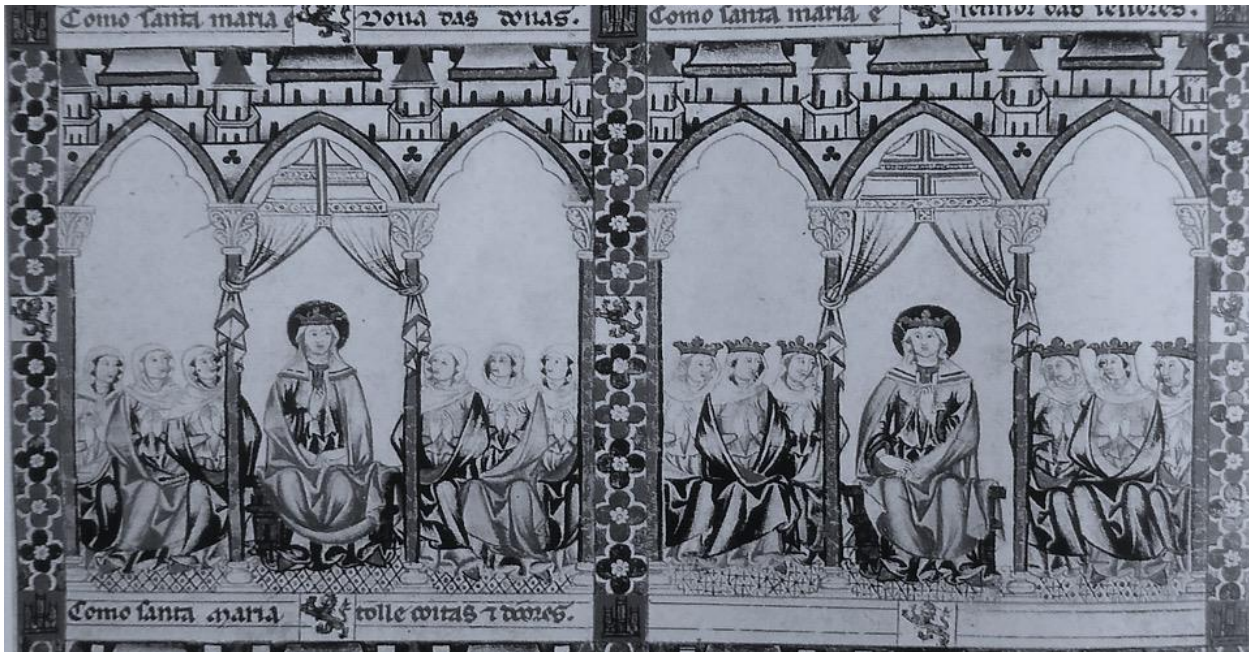 Como santa maria é Dona das donas.
Como santa maria é sennor das sennores.
Como santa maria tolle coitas ⁊ doores.